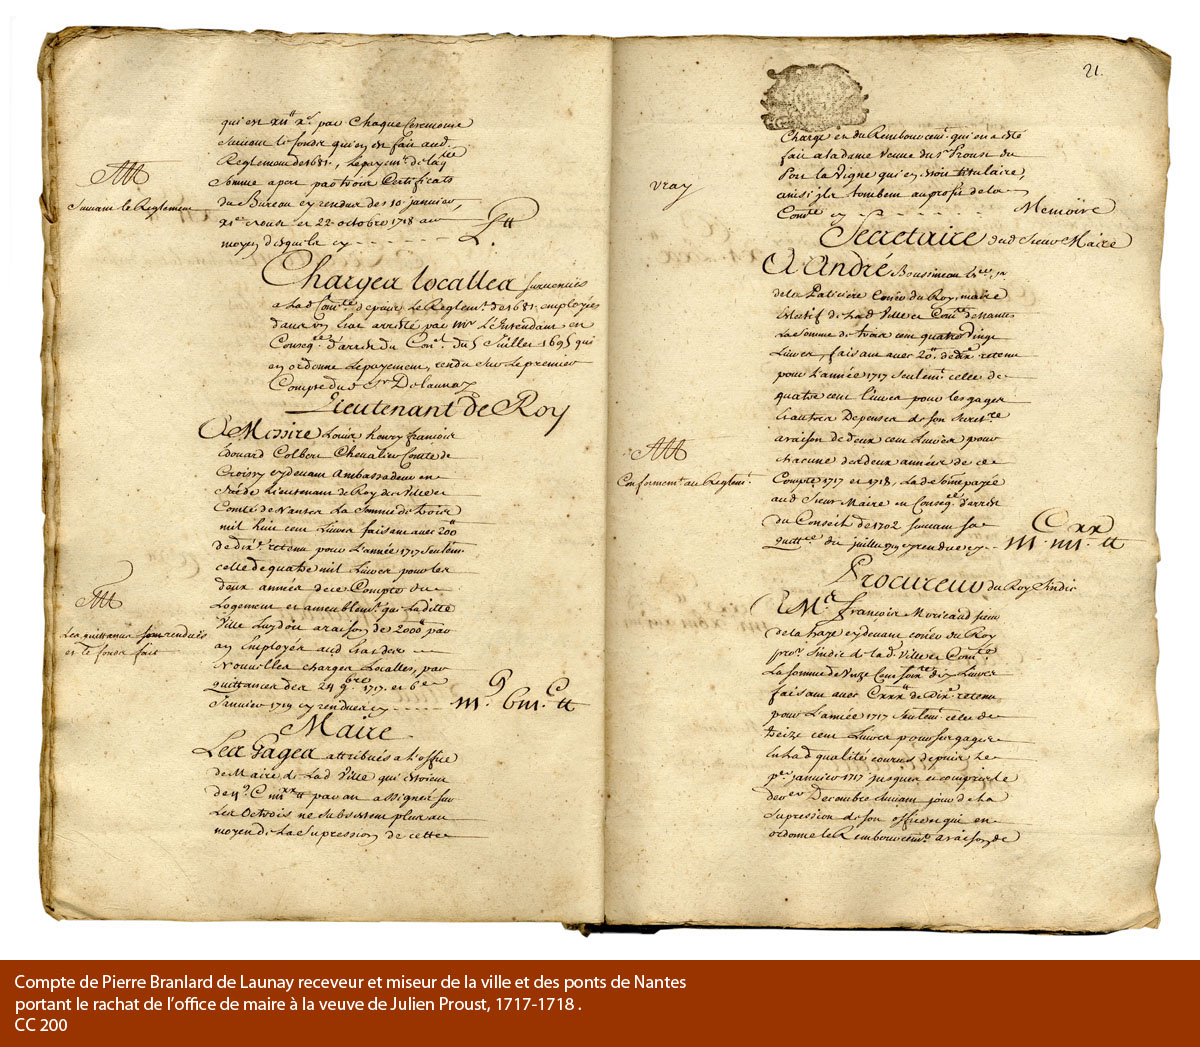 qui est xii# xs. par Chaque Ceremonie
suivant le fonds qui en est fait aud.
Reglement de 1681, Le payemt. de laq
somme apert par trois Certificats
Suivant le Reglement
du Bureau cy rendus des 10 janvier,
xie aoust et 22 octobre 1718 au
moyen desquels cy
Charges localles survenües
a lad Comte depuis le Reglemt. de 1681. employées
dans un Etat arresté par Mr L'Intendant en
Conseqce d'arrest du Conl. du 5 Juillet 1695 qui
en ordonne le payement, rendu sur le premier
Compte dud. Sr De launay
Lieutenant de Roy
A Messire Louis henry françois
Edouard Colbert Chevalier Comte de
Croissy cy devant Ambassadeur en
Suede Lieutenant de Roy des Ville et
Comté de Nantes La Somme de trois
mil huit cent Livres faisant avec 200#
de dixe. retenu pour L'année 1717 seulemt.
celle de quatre mil Livres pour les
deux années de ce Compte du
Logement et ameublemt. que Laditte
Ville Luy doit a raison de 2000# par
Les quittances sont rendües
et le fonds fait
an Employée aud Etat des
Nouvelles charges Locales, par
quittances des 24 9bre. 1717. et 6e
Janvier 1719 cy rendües cy
Maire
Les Gages attribués a l'office
de Maire de Lad Ville qui estoient
par an assignés sur
Les Octrois ne subsistent plus au
moyen de La Supression de cette
21.
Charge et du Remboursemt. qui en a esté
fait a la dame veuve du Sr Proust du
Port la Vigne qui en estoit titulaire,
vray
ainsi ils tombent au profit de la
Comté cy Memoire
Secretaire dud Sieur Maire
A André Boussineau
de la Paticiere Coner du Roy, maire
Electif de Lad Ville et Comté de nantes
La somme de trois cent quatre Vingt
Livres, faisant avec 20# de dixe retenu
pour L'année 1717 seulemt. celle de
quatre cent Livres pour les gages
Et autres Depenses de son Secretre
a raison de deux cent Livres pour
chacune des deux années de ce
Conformemt. au Reglemt.
Compte 1717 et 1718, Lad Somme payée
aud Sieur Maire en Conseqce d'arrest
du Conseil de 1702 suivant sa
quittce de juillet 1719 cy rendüe cy
Procureur du Roy Sindic
A Me. François Moricaud sieur
de la haye cy devant Coner du Roy
pror. Sindic de lad. Ville et Comté.
La somme de Onze Cent Soixte dix Livres
faisant avec Cxxx# de Dixe. retenu
pour L'année 1717 seulemt. celle de
treize cent Livres pour ses gages
En lad qualité courus depuis Le
per janvier 1717 jusques et compris le
dernier Decembre suivant jour de la
Supression de son office qui en
ordonne le Remboursemt. a raison de
Compte de Pierre Branlard de Launay receveur et miseur de la ville et des ponts de Nantes
portant le rachat de l'office de maire à la veuve de Julien Proust, 1717-1718 .
CC 200